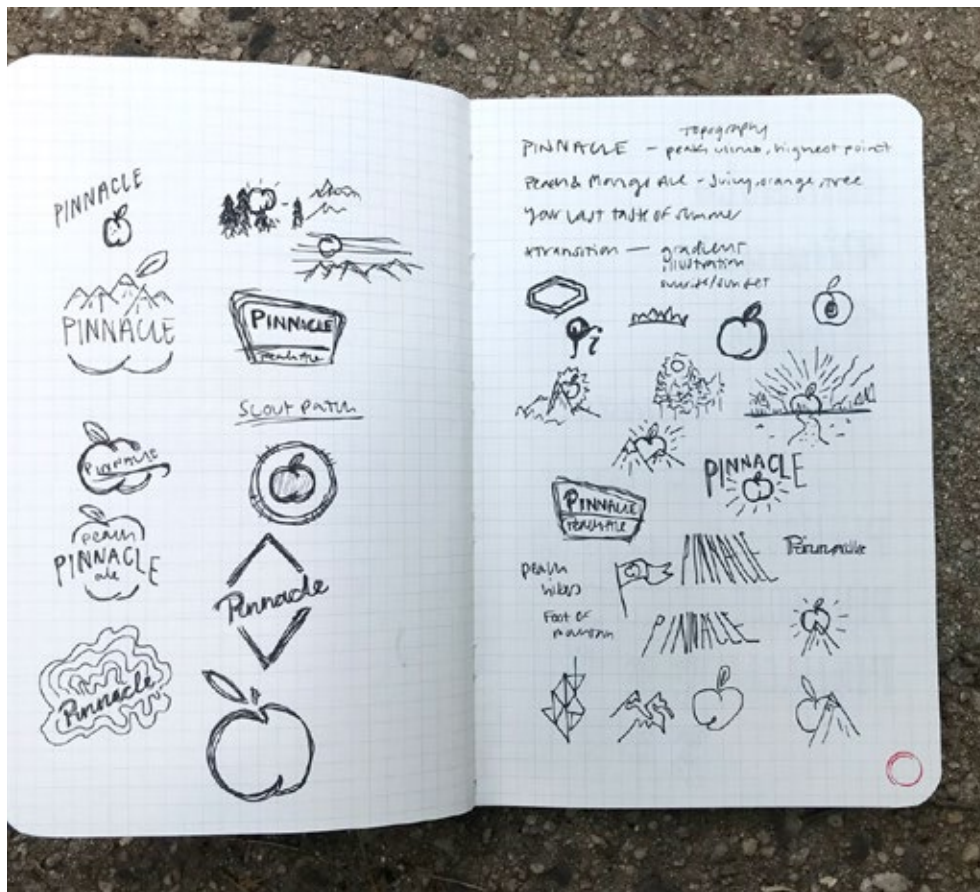 PINNACLE
PINNACLE
PINNACLE
Peach Ale
Scout Patch
PINNACLE
peach
PINNACLE
ale
Pinnacle
Pinnacle
Topography
PINNACLE – peak, climb, highest point
Peach & Mango Ale - Juicy, orange, tree
Your last taste of summer
*transition — gradient
illustration
sunrise/sunset
PINNACLE
PINNACLE
Peach Ale
PINNACLE
Pinnacle
peach
hikers
Foot of
mountain
PINNACLE